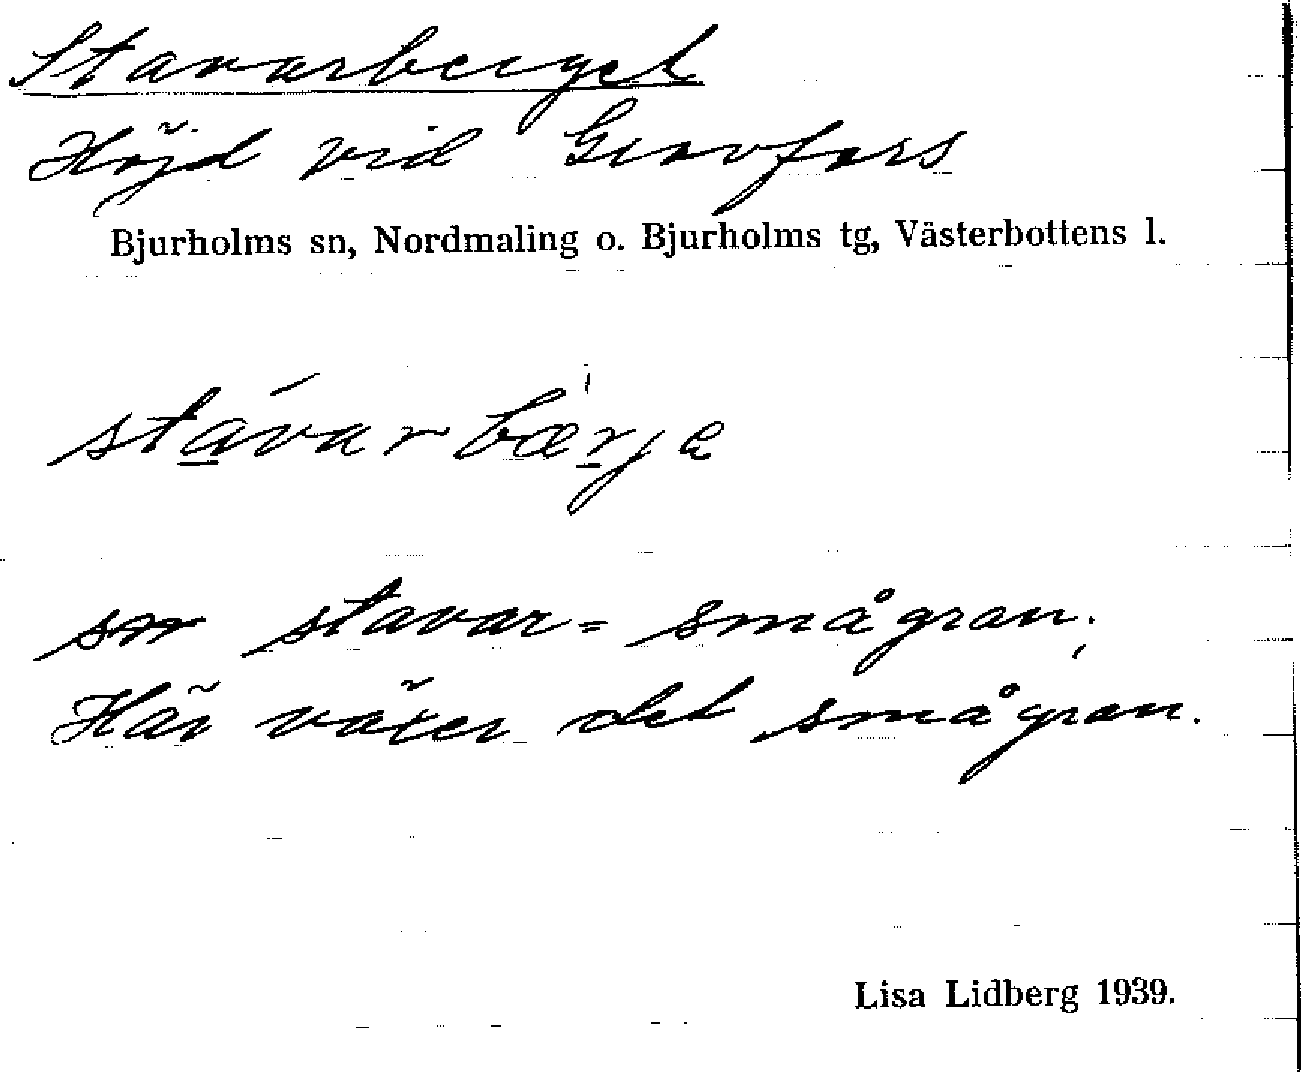 Stavarberget
Höjd vid Gravfors
Bjurholms sn, Nordmaling o. Bjurholms tg, Västerbottens l.
stávarbærje
stavar = smågran;
Här växer det smågran.
Lisa Lidberg 1939.